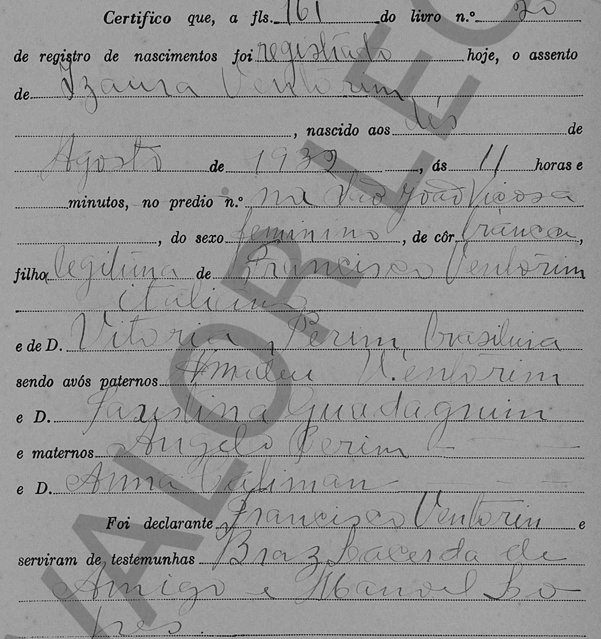 Certifico que, a fls. 161 do livro n.º 20
de registro de nascimentos foi registrado hoje, o assento
de Izaura Ventorim
, nascido aos dés de
Agosto de 1932, ás 11 horas e
minutos, no predio n.º na Vª João Viçosa
, do sexo feminino, de côr branca,
filha legitima de Francisco Ventorim
italiano
e de D. Vitoria Perim, brasileira
sendo avós paternos Amadeu Ventorim
e D. Faustina Guadagnim
e maternos Angelo Perim
e D. Anna Caliman
Foi declarante Francisco Ventorin e
serviram de testemunhas Braz Lacerda de
Amigo e Manoel Lo
pes.
VALOR LE